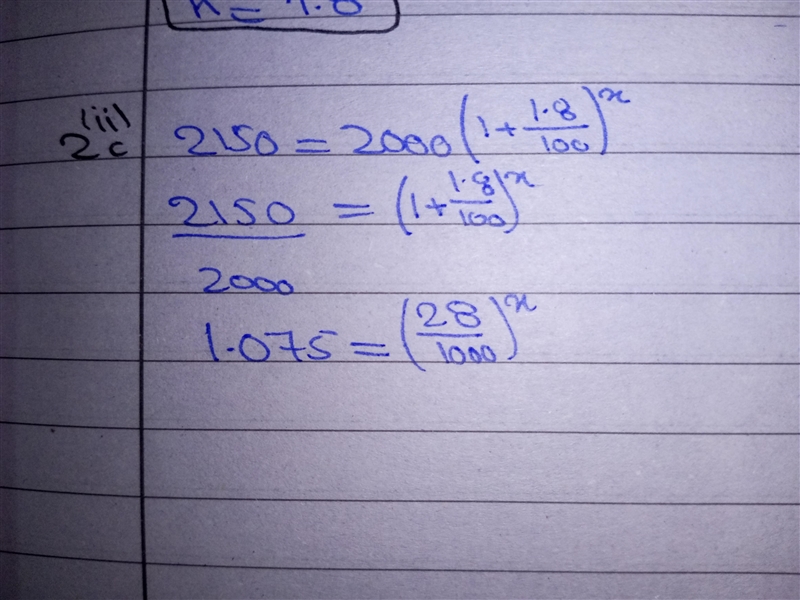 2c (ii) 2150 = 2000 (1 + 1.8/100)^x
2150/2000 = (1 + 1.8/100)^x
1.075 = (28/1000)^x